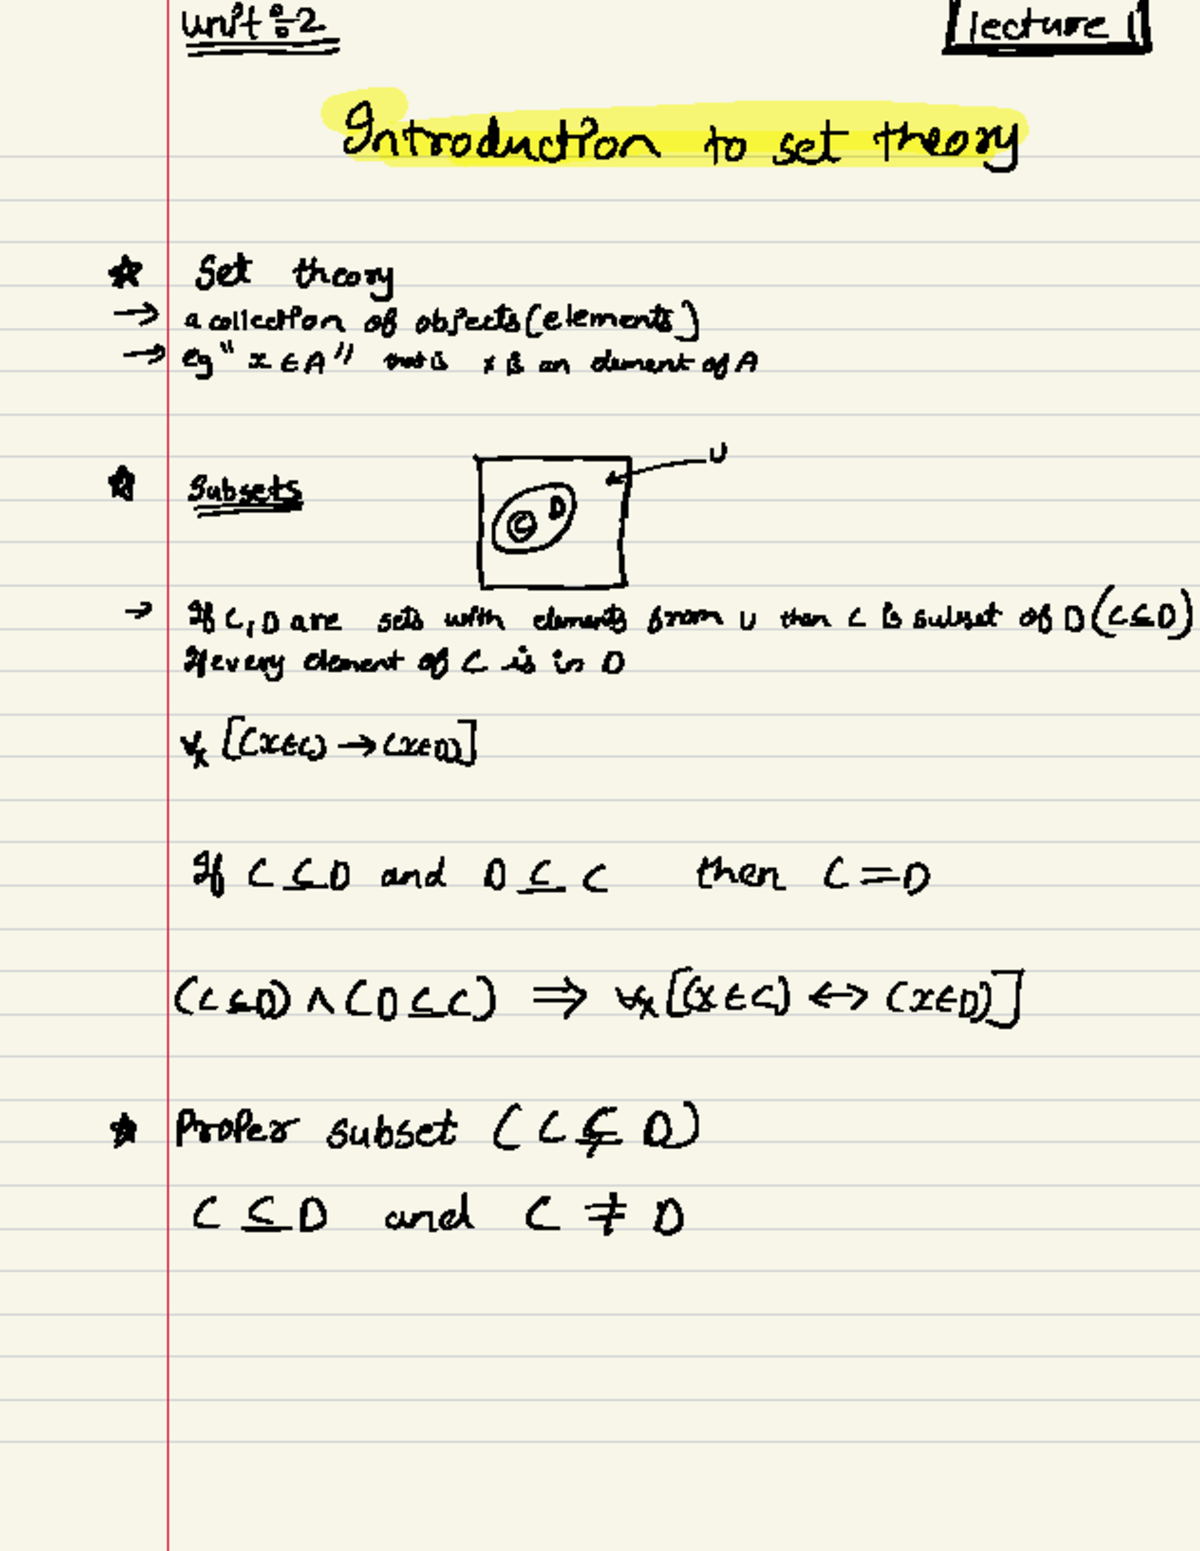 Unit ÷ 2
lecture 1
Introduction to set theory
★ Set theory
→ a collection of objects (elements)
→ eg " x ∈ A " that is x is an element of A
★ Subsets
U
C D
→ If C, D are sets with elements from U then C is subset of D (C ⊆ D)
If every element of C is in D
∀x [(x ∈ C) → (x ∈ D)]
If C ⊆ D and D ⊆ C then C = D
(C ⊆ D) ∧ (D ⊆ C) ⇒ ∀x [(x ∈ C) ↔ (x ∈ D)]
★ Proper subset (C ⊊ D)
C ⊆ D and C ≠ D